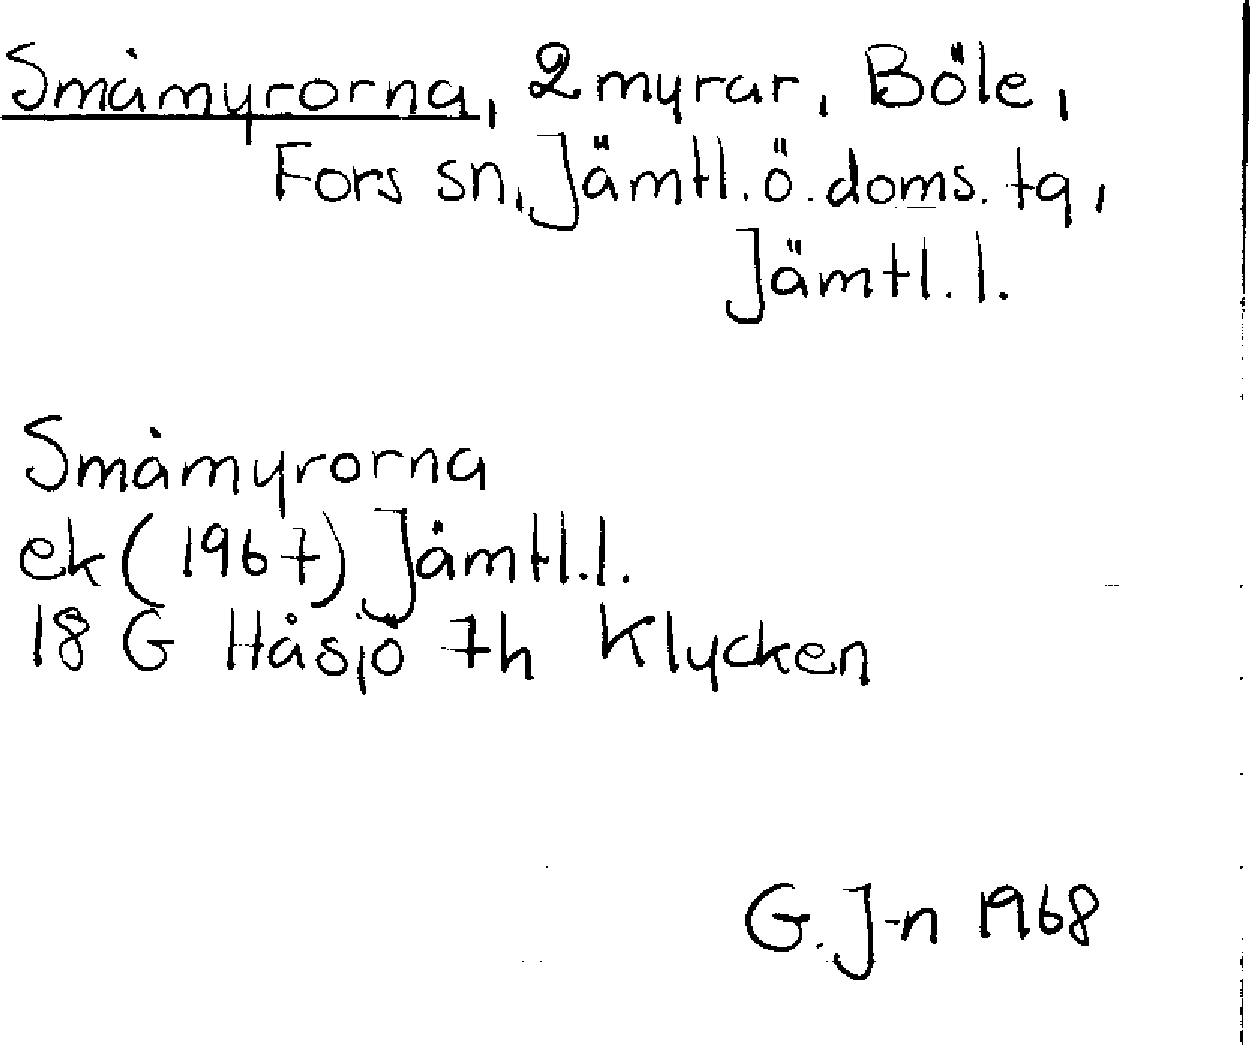 Småmyrorna, 2 myrar, Böle,
Fors sn, Jämtl. ö. doms. tg,
Jämtl. l.
Småmyrorna
ek (1967) Jämtl. l.
18 G Håsjö 7h Klycken
G. J-n 1968